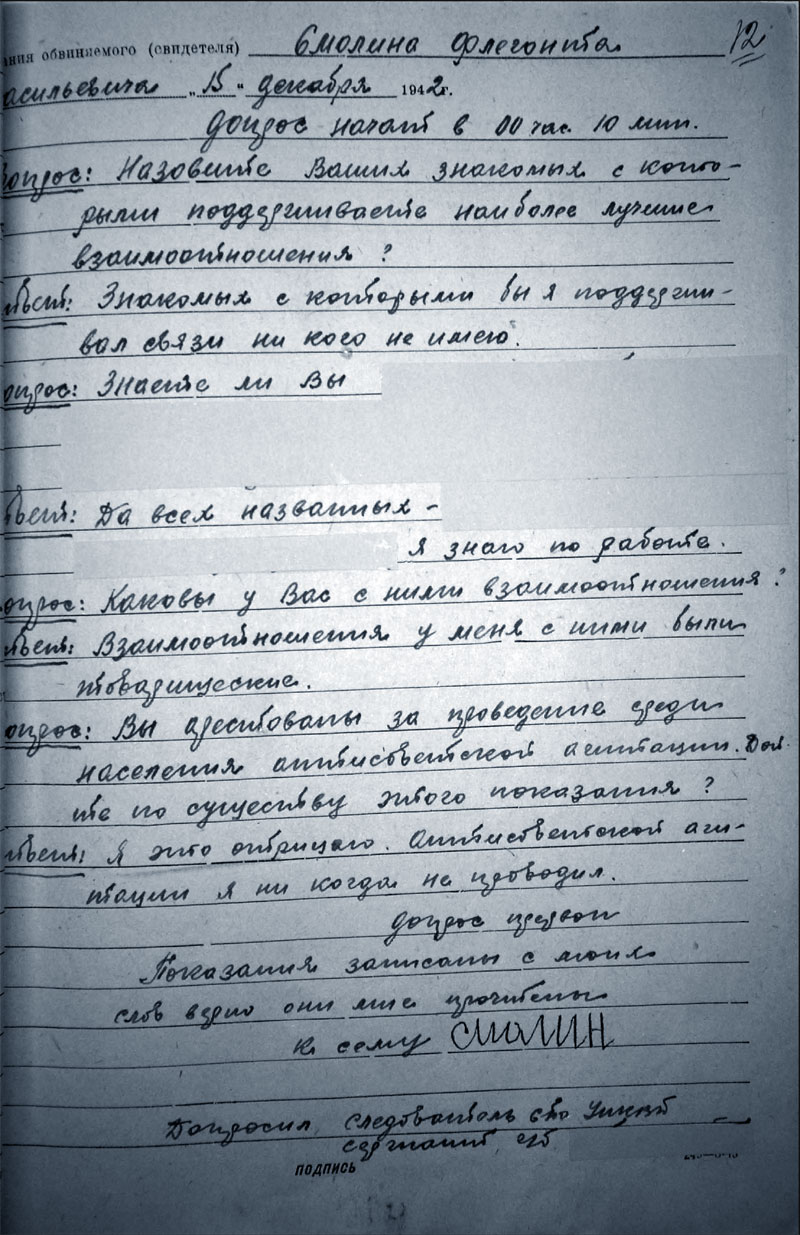 ания обвиняемого (свидетеля) Смолина Флегонта 12
асильевича „15" декабря 1942г.
допрос начат в 00 час. 10 мин.
опрос: Назовите Ваших знакомых с кото-
рыми поддерживаете наиболее лучшие
взаимоотношения?
твет: Знакомых с которыми бы я поддержи-
вал связи ни кого не имею.
опрос: Знаете ли Вы
твет: Да всех названных -
я знаю по работе.
опрос: Каковы у Вас с ними взаимоотношения?
твет: Взаимоотношения у меня с ними были
товарищеские.
опрос: Вы арестованы за проведение среди
населения антисоветской агитации. Дай
те по существу этого показания?
твет: Я это отрицаю. Антисоветской аги-
тации я ни когда не проводил.
допрос прерван
Показания записаны с моих
слов верно они мне прочитаны
К сему Смолин
Допросил, следователь
сержант г/б
подпись